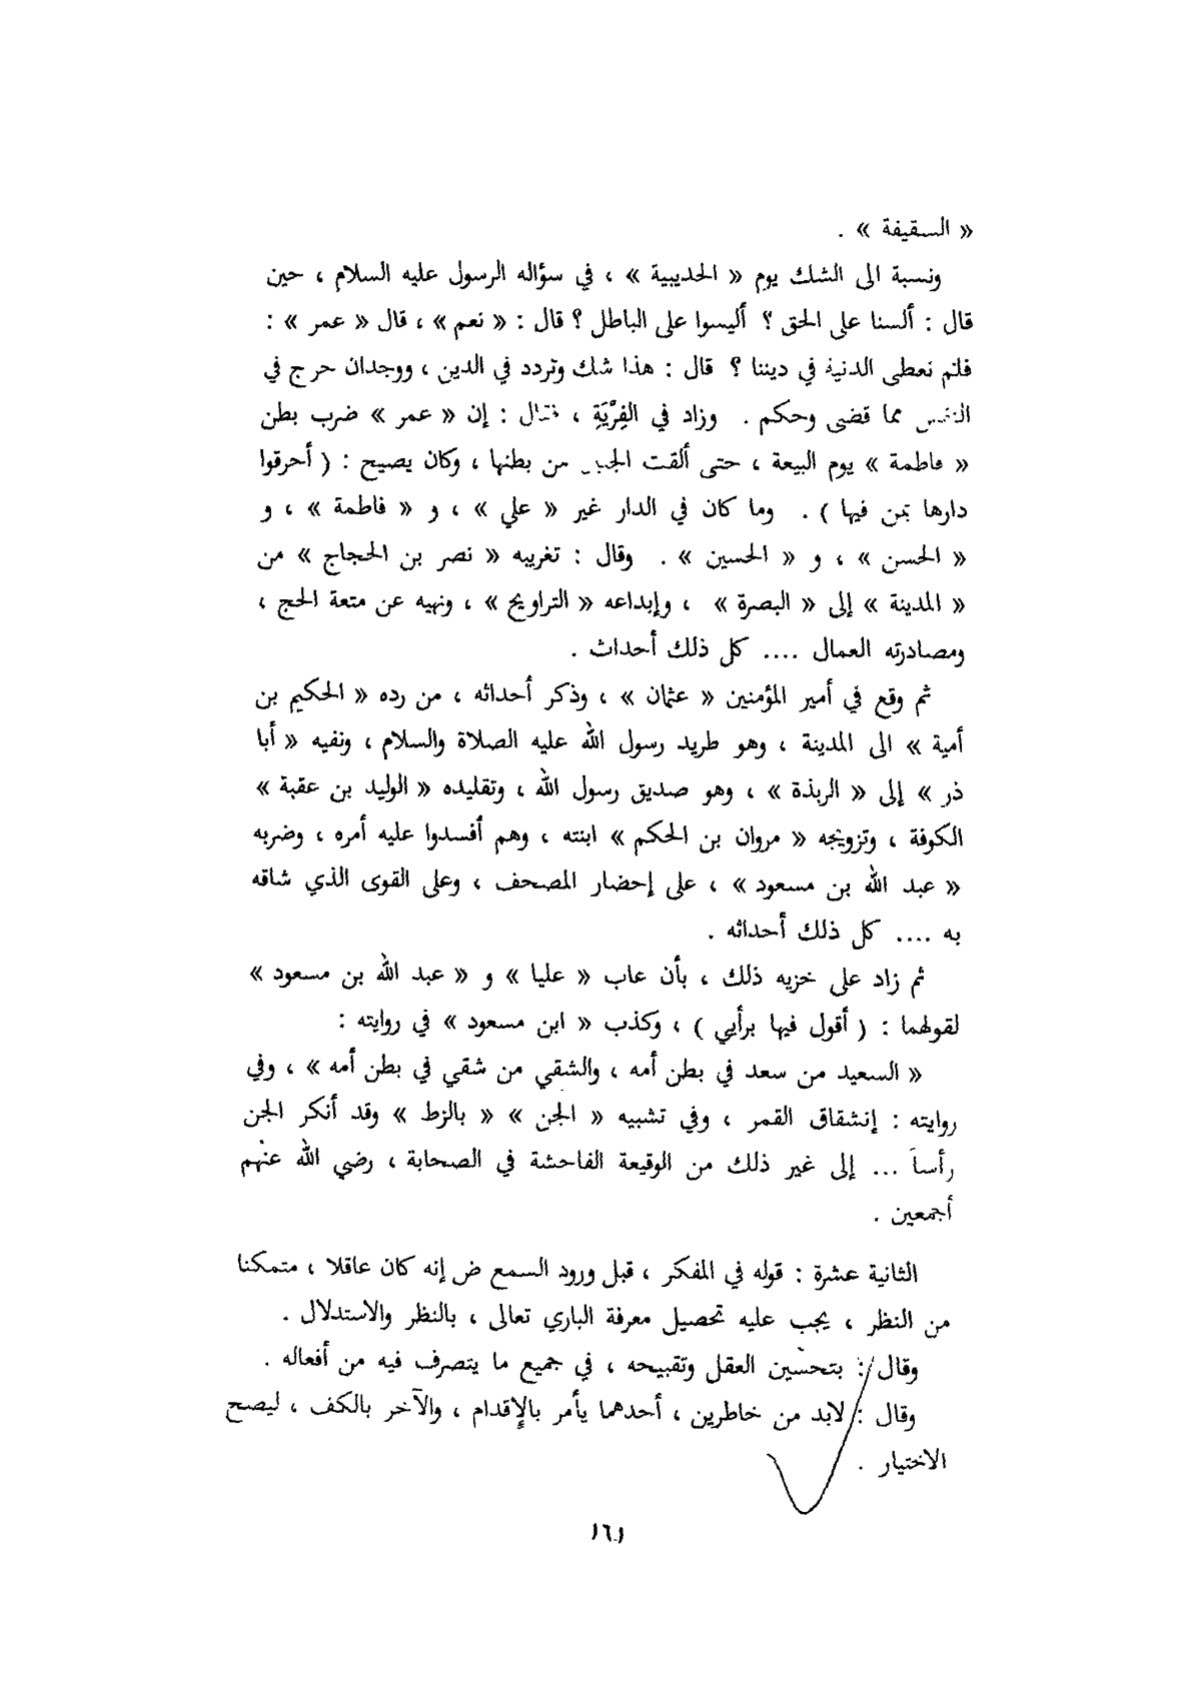 « السقيفة » .
ونسبة الى الشك يوم « الحديبية » ، في سؤاله الرسول عليه السلام ، حين
قال : ألسنا على الحق ؟ أليسوا على الباطل ؟ قال : « نعم » ، قال « عمر » :
فلم نعطى الدنية في ديننا ؟ قال : هذا شك وتردد في الدين ، ووجدان حرج في
النفس مما قضى وحكم . وزاد في الفِرْيَةِ ، فقال : إن « عمر » ضرب بطن
« فاطمة » يوم البيعة ، حتى ألقت الجنين من بطنها ، وكان يصيح : ( أحرقوا
دارها بمن فيها ) . وما كان في الدار غير « علي » ، و « فاطمة » ، و
« الحسن » ، و « الحسين » . وقال : تغريبه « نصر بن الحجاج » من
« المدينة » إلى « البصرة » ، وإبداعه « التراويح » ، ونهيه عن متعة الحج ،
ومصادرته العمال .... كل ذلك أحداث .
ثم وقع في أمير المؤمنين « عثمان » ، وذكر أحداثه ، من رده « الحكيم بن
أمية » الى المدينة ، وهو طريد رسول الله عليه الصلاة والسلام ، ونفيه « أبا
ذر » إلى « الربذة » ، وهو صديق رسول الله ، وتقليده « الوليد بن عقبة »
الكوفة ، وتزويجه « مروان بن الحكم » ابنته ، وهم أفسدوا عليه أمره ، وضربه
« عبد الله بن مسعود » ، على إحضار المصحف ، وعلى القوى الذي شاقه
به .... كل ذلك أحداثه .
ثم زاد على خزيه ذلك ، بأن عاب « عليا » و « عبد الله بن مسعود »
لقولهما : ( أقول فيها برأيي ) ، وكذب « ابن مسعود » في روايته :
« السعيد من سعد في بطن أمه ، والشقي من شقي في بطن أمه » ، وفي
روايته : إنشقاق القمر ، وفي تشبيه « الجن » « بالزط » وقد أنكر الجن
رأساً ... إلى غير ذلك من الوقيعة الفاحشة في الصحابة ، رضي الله عنهم
أجمعين .
الثانية عشرة : قوله في المفكر ، قبل ورود السمع ض إنه كان عاقلا ، متمكنا
من النظر ، يجب عليه تحصيل معرفة الباري تعالى ، بالنظر والاستدلال .
وقال : بتحسين العقل وتقبيحه ، في جميع ما يتصرف فيه من أفعاله .
وقال : لابد من خاطرين ، أحدهما يأمر بالإقدام ، والآخر بالكف ، ليصح
الاختيار .
١٦١